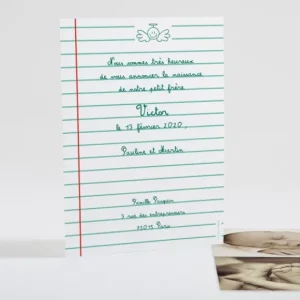 Nous sommes très heureux
de vous annoncer la naissance
de notre petit frère
Victor
le 17 février 2020,
Pauline et Martin
Famille Parquin
3 rue des entrepreneurs
75015 Paris